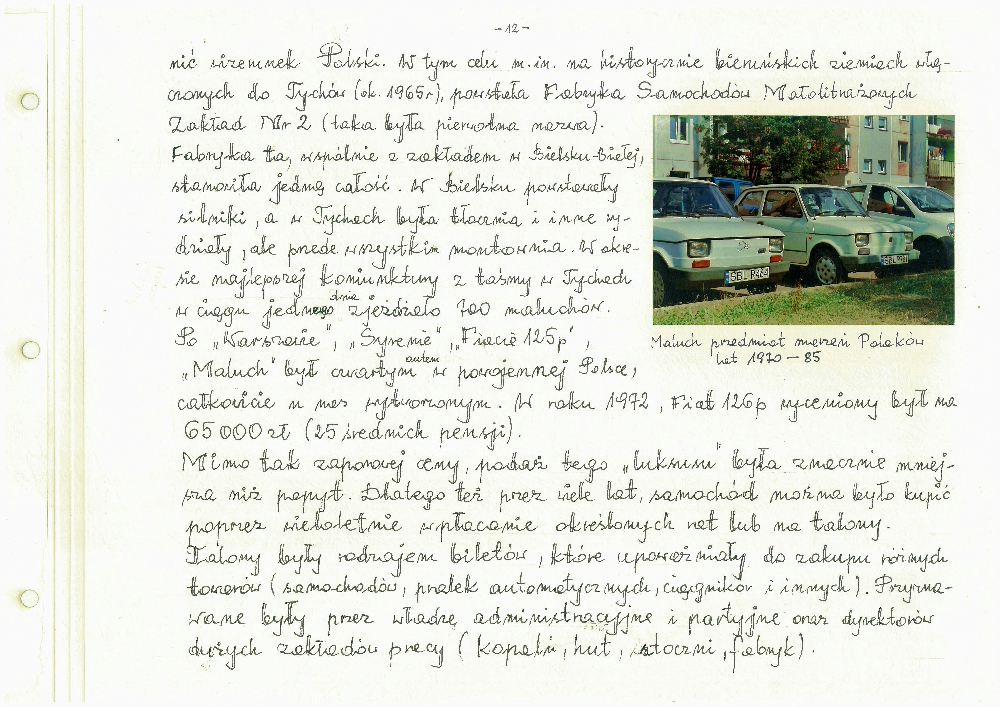 - 12 -
nić wizerunek Polski. W tym celu m.in. na historycznie bieruńskich ziemiach włą-
czonych do Tychów (ok. 1965r), powstała Fabryka Samochodów Małolitrażowych
Zakład Nr 2 (taka była pierwotna nazwa).
Fabryka ta, wspólnie z zakładem w Bielsku-Białej,
stanowiła jedną całość. W Bielsku powstawały
silniki, a w Tychach była tłocznia i inne wy-
działy, ale przede wszystkim montownia. W okre-
sie najlepszej koniunktury z taśmy w Tychach
w ciągu jednego dnia zjeżdżało 700 maluchów.
Po „Warszawie", „Syrenie", „Fiacie 125p",
„Maluch" był czwartym autem w powojennej Polsce,
całkowicie u nas wytworzonym. W roku 1972, Fiat 126p wyceniony był na
65 000 zł (25 średnich pensji).
Mimo tak zaporowej ceny, podaż tego „luksusu" była znacznie mniej-
sza niż popyt. Dlatego też przez wiele lat, samochód można było kupić
poprzez wieloletnie wpłacanie określonych rat lub na talony.
Talony były rodzajem biletów, które upoważniały do zakupu różnych
towarów (samochodów, pralek automatycznych, ciągników i innych). Przyzna-
wane były przez władzę administracyjne i partyjne oraz dyrektorów
dużych zakładów pracy (kopalń, hut, stoczni, fabryk).
SBL R464
Maluch przedmiot marzeń Polaków
lat 1970 - 85